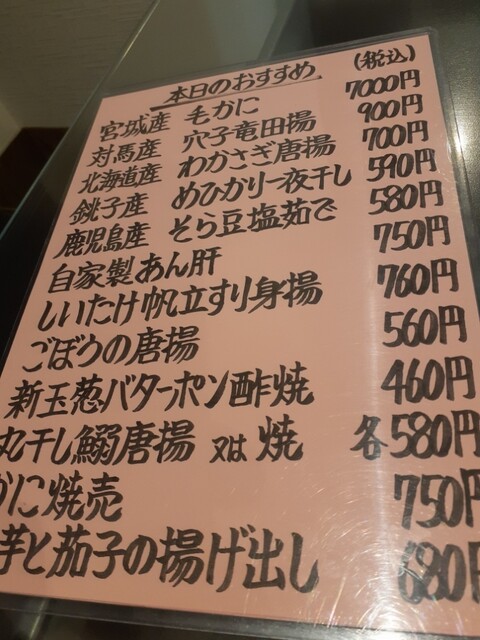 本日のおすすめ (税込)
宮城産 毛がに 7000円
対馬産 穴子竜田揚 900円
北海道産 わかさぎ唐揚 700円
銚子産 めひかり一夜干し 590円
鹿児島産 そら豆塩茹で 580円
自家製あん肝 750円
しいたけ帆立すり身揚 760円
ごぼうの唐揚 560円
新玉葱バターポン酢焼 460円
丸干し鰯唐揚 又は 焼 各580円
かに焼売 750円
芋と茄子の揚げ出し 680円